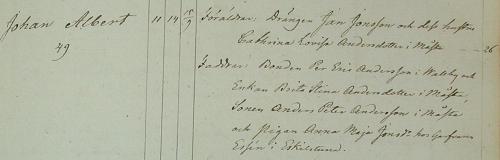 Johan Albert 11 14 15/9 Föräldrar: Drängen Jan Jonsson och dess hustru
49 Cathrina Lovisa Andersdotter i Måsta 26
Faddrar: Bonden Per Eric Andersson i Walsby och
Enkan Brita Stina Andersdotter i Måsta,
Sonen Anders Peter Andersson i Måsta
och Pigan Anna Maja Jonsdr hos
i Eskilstuna.